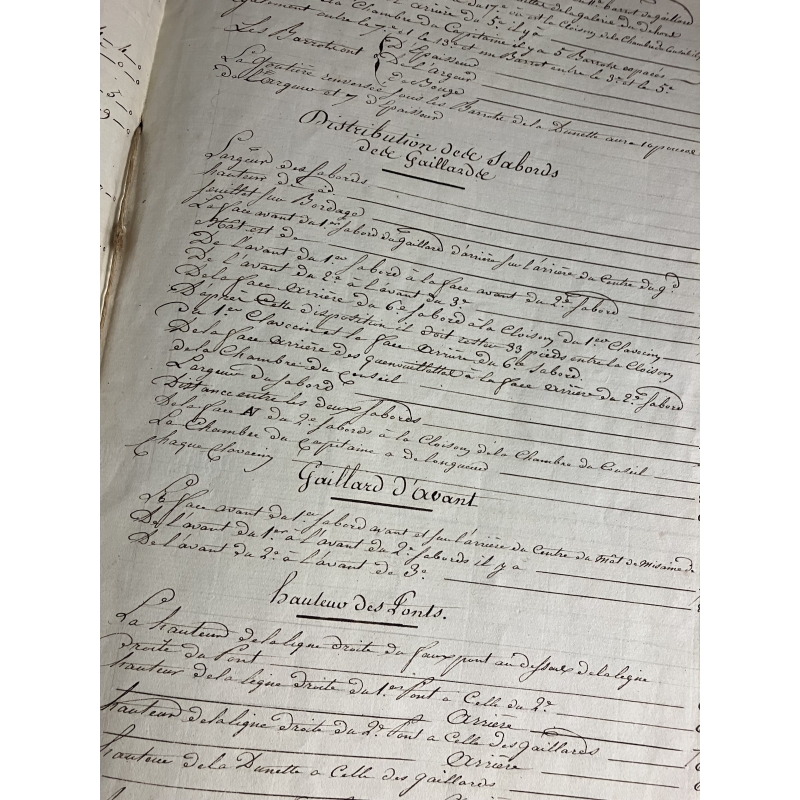 La Chambre du Capitaine il y a 5 Barrots espacés
également entre le 7e et le 13e et un Barrot entre le 3e et le 5e
Les Barrots ont
d'Epaisseur
De Largeur
de Bouge
La goutière renversée sous les Barrots de la Dunette aura 10 pouces
de Largeur et 7 d'Epaisseur
Distribution des Sabords
des Gaillards
Largeur des Sabords
hauteur d°
feuillet sur Bordage
La face avant du 1er Sabord du Gaillard d'arrière sur l'arrière du Centre du gd
Mât est de
De l'avant du 1er Sabord à la face avant du 2e Sabord
De l'avant du 2e à l'avant du 3e
De la face arrière du 6e Sabord à la Cloison du 1er Clavecin
D'après Cette disposition il doit rester 33 pieds entre la Cloison
du 1er Clavecin et la face arrière du 6e Sabord
De la face arrière des Quenouillettes à la face arrière du 2e Sabord
de la Chambre du Conseil
Largeur du Sabord
Distance entre les deux Sabords
De la face AV du 2e Sabords à la Cloison de la Chambre du Conseil
La Chambre du Capitaine a de longueur
Chaque Clavecin
Gaillard d'avant
La face avant du 1er Sabord avant est sur l'arrière du Centre du mât de Misaine de
De l'avant du 1er à l'avant du 2e Sabords il y a
De l'avant du 2e à l'avant de 3e
hauteur des Ponts.
La hauteur de la ligne droite du faux pont au dessus de la ligne
droite du Pont
hauteur de la ligne droite du 1er Pont à Celle du 2e
Arrière
hauteur de la ligne droite du 2e Pont à Celle des gaillards
Arrière
hauteur de la Dunette à Celle des gaillards